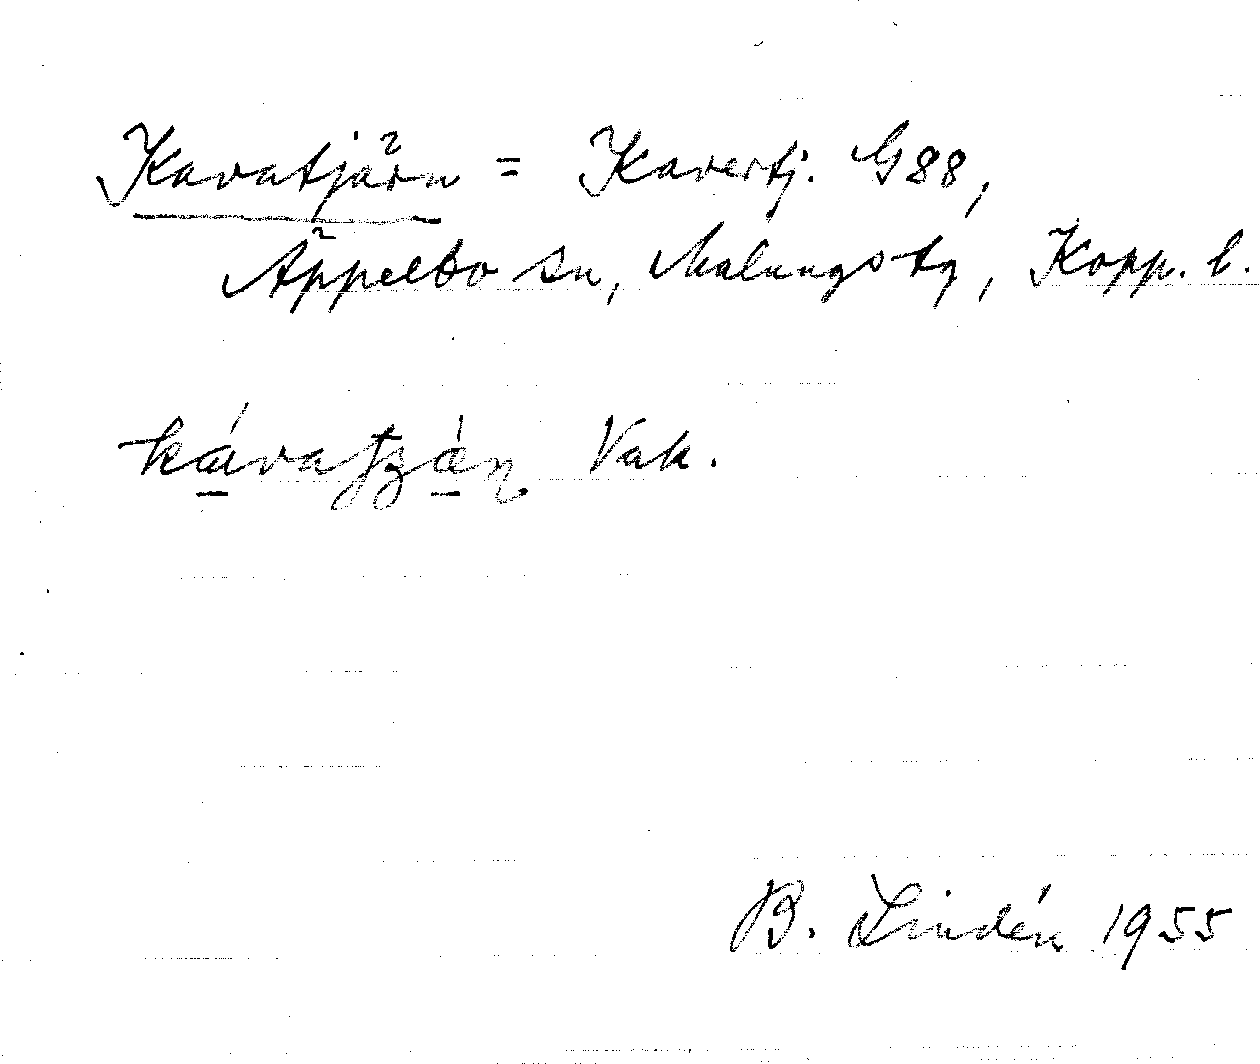 Kavatjärn = Kavertj. G88,
Äppelbo sn, Malungs tg, Kopp. l.
kávatʒán Vak.
B. Lindén 1955